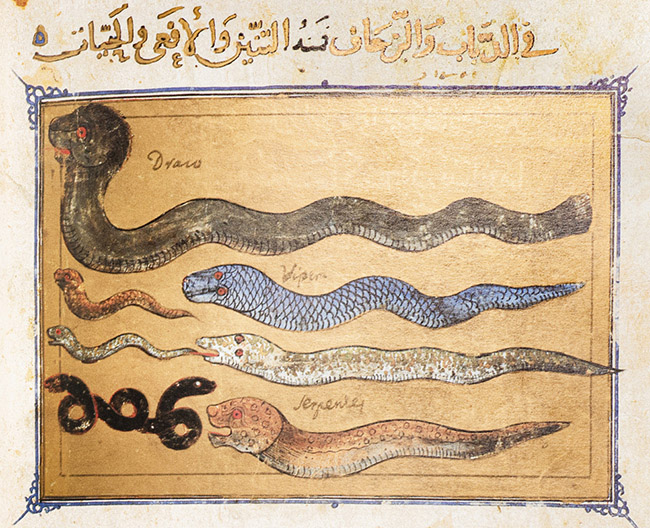 في الدباب والزحافات فمنه التنين والأفعى والحيات
Draco
Viper
Serpentes